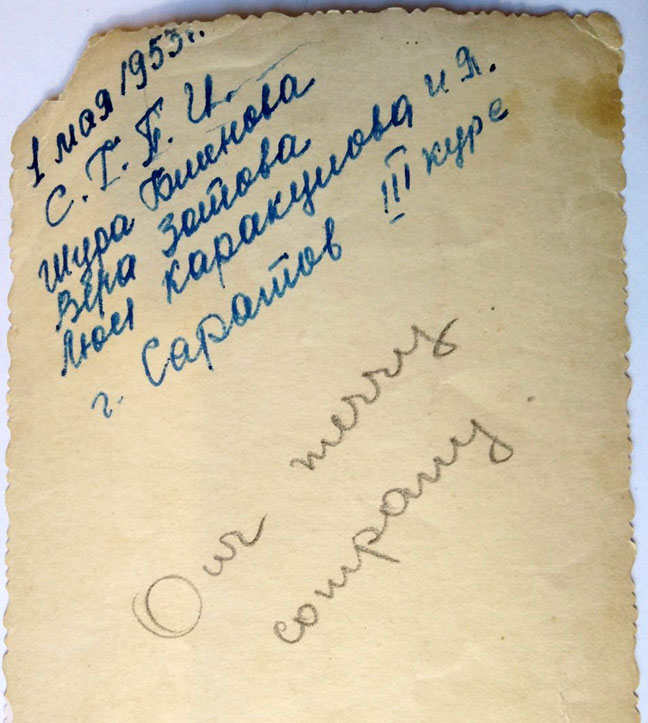 1 мая 1953г.
С. Г. П. И.
Шура
Вера Зотова
Люся Каракулова и Я.
г. Саратов III курс
Our merry
company.